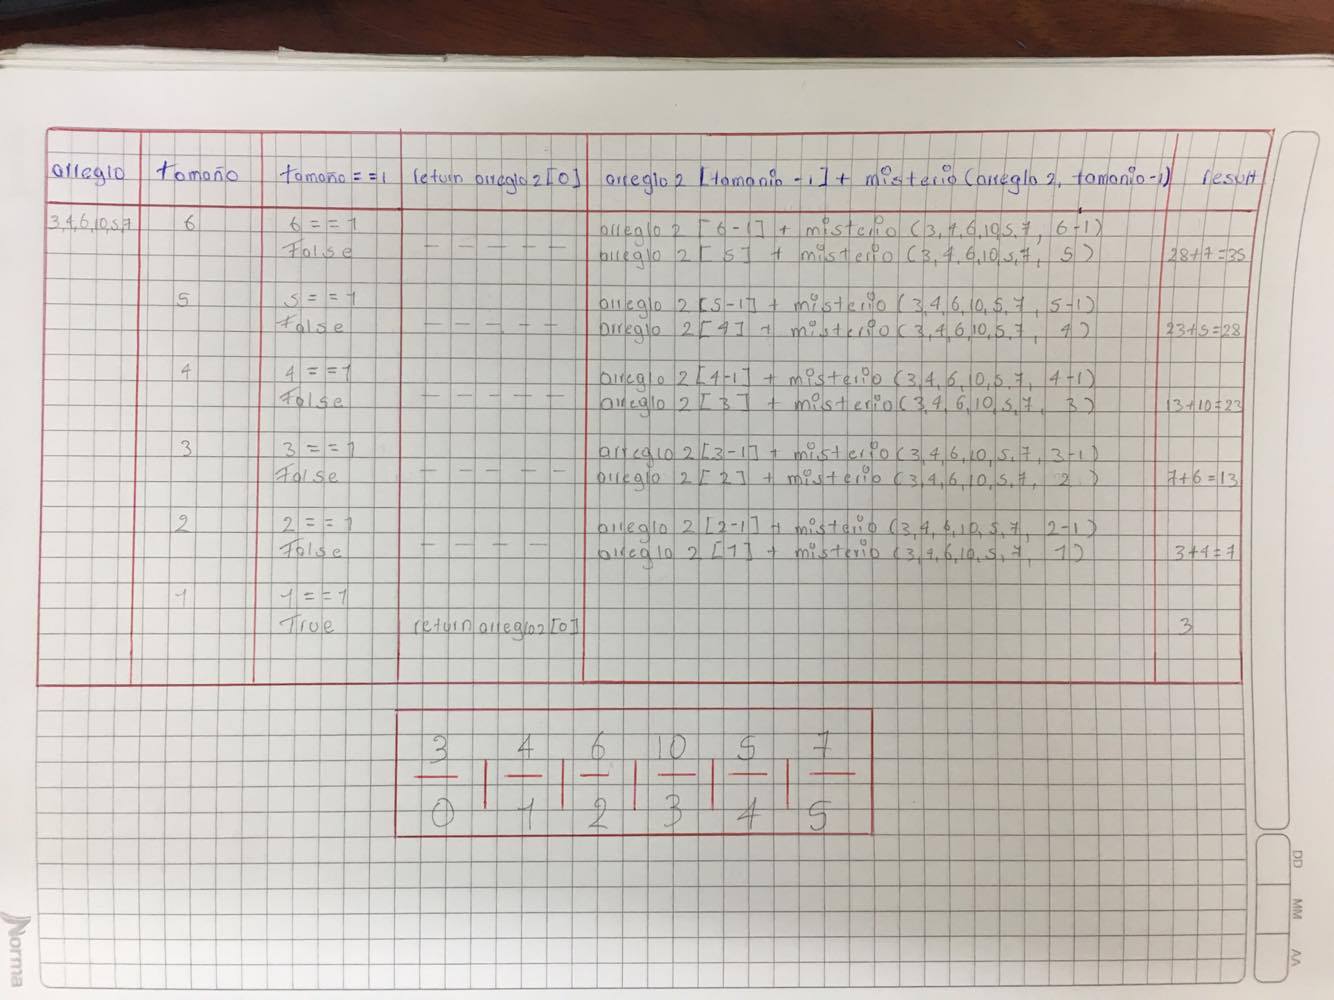 arreglo tamaño tamaño==1 return arreglo2[0] arreglo 2 [tamanio-1] + misterio (arreglo 2, tamanio-1) result
3,4,6,10,5,7 6 6 == 1 arreglo 2 [6-1] + misterio (3,4,6,10,5,7, 6-1)
False - - - - - arreglo 2 [5] + misterio (3,4,6,10,5,7, 5) 28+7=35
5 5 == 1 arreglo 2 [5-1] + misterio (3,4,6,10,5,7, 5-1)
False - - - - - arreglo 2 [4] + misterio (3,4,6,10,5,7, 4) 23+5=28
4 4 == 1 arreglo 2 [4-1] + misterio (3,4,6,10,5,7, 4-1)
False - - - - - arreglo 2 [3] + misterio (3,4,6,10,5,7, 3) 13+10=23
3 3 == 1 arreglo 2 [3-1] + misterio (3,4,6,10,5,7, 3-1)
False - - - - - arreglo 2 [2] + misterio (3,4,6,10,5,7, 2) 7+6=13
2 2 == 1 arreglo 2 [2-1] + misterio (3,4,6,10,5,7, 2-1)
False - - - - arreglo 2 [1] + misterio (3,4,6,10,5,7, 1) 3+4=7
1 1 == 1
True return arreglo2[0] 3
3 4 6 10 5 7
0 1 2 3 4 5
DD
MM
AA
Norma